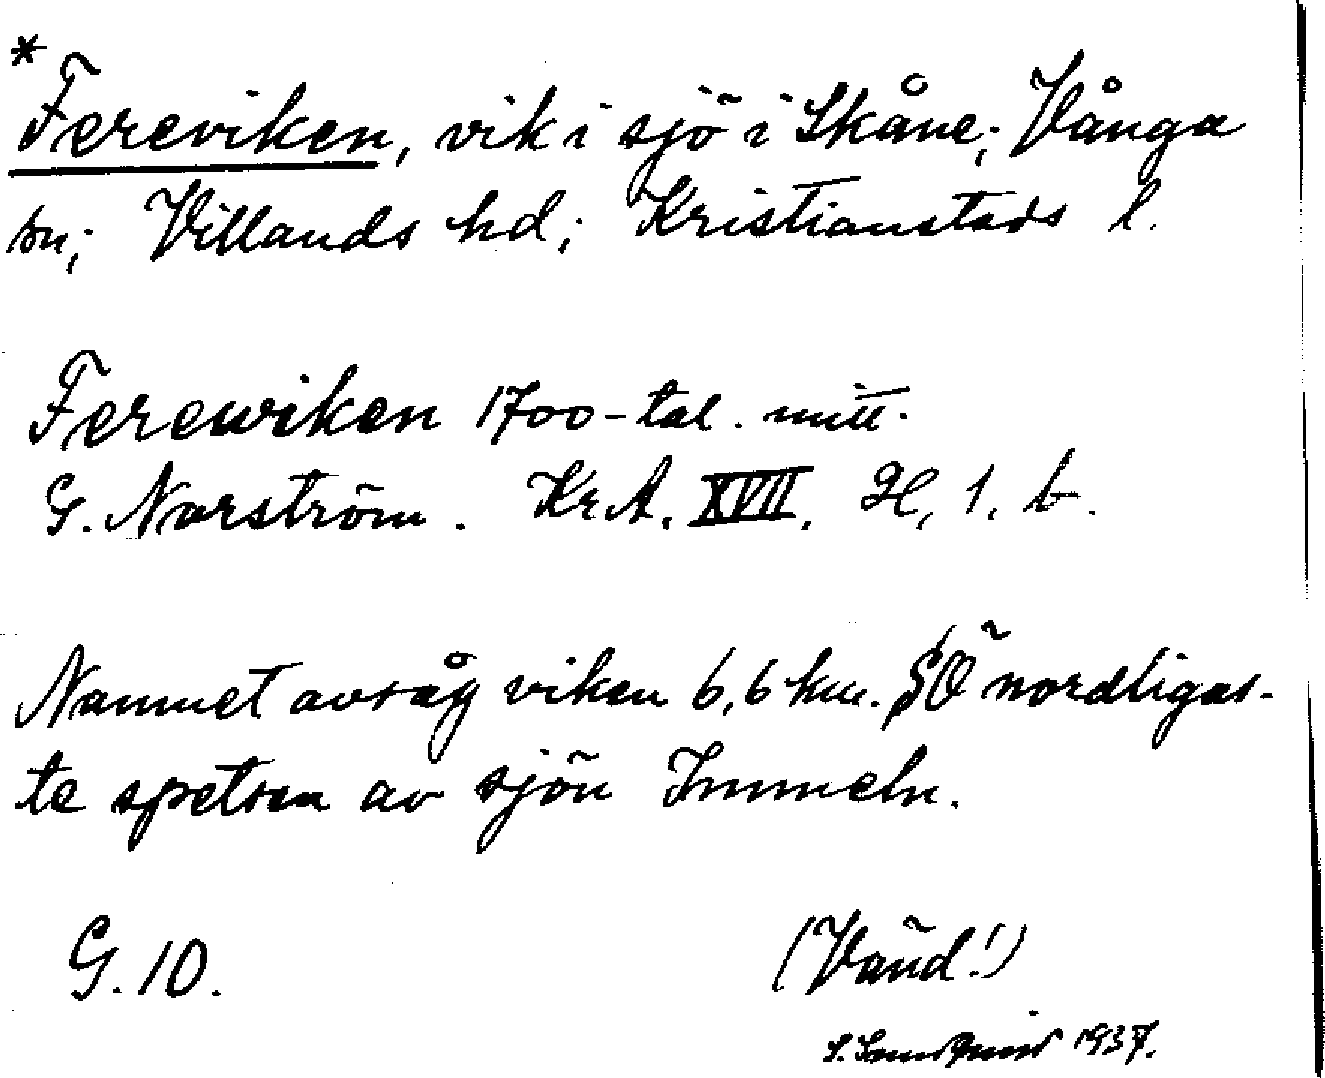 *
Fereviken, vik i sjö i Skåne; Vånga
sn; Villands hd; Kristianstads l.
Ferewiken 1700-tal. mitt.
G. Norström. Kr.A. XVII. H, 1. b.
Namnet avsåg viken 6,6 km. SÖ nordligas-
te spetsen av sjön Immeln.
G. 10.
(Vänd!)
1937.